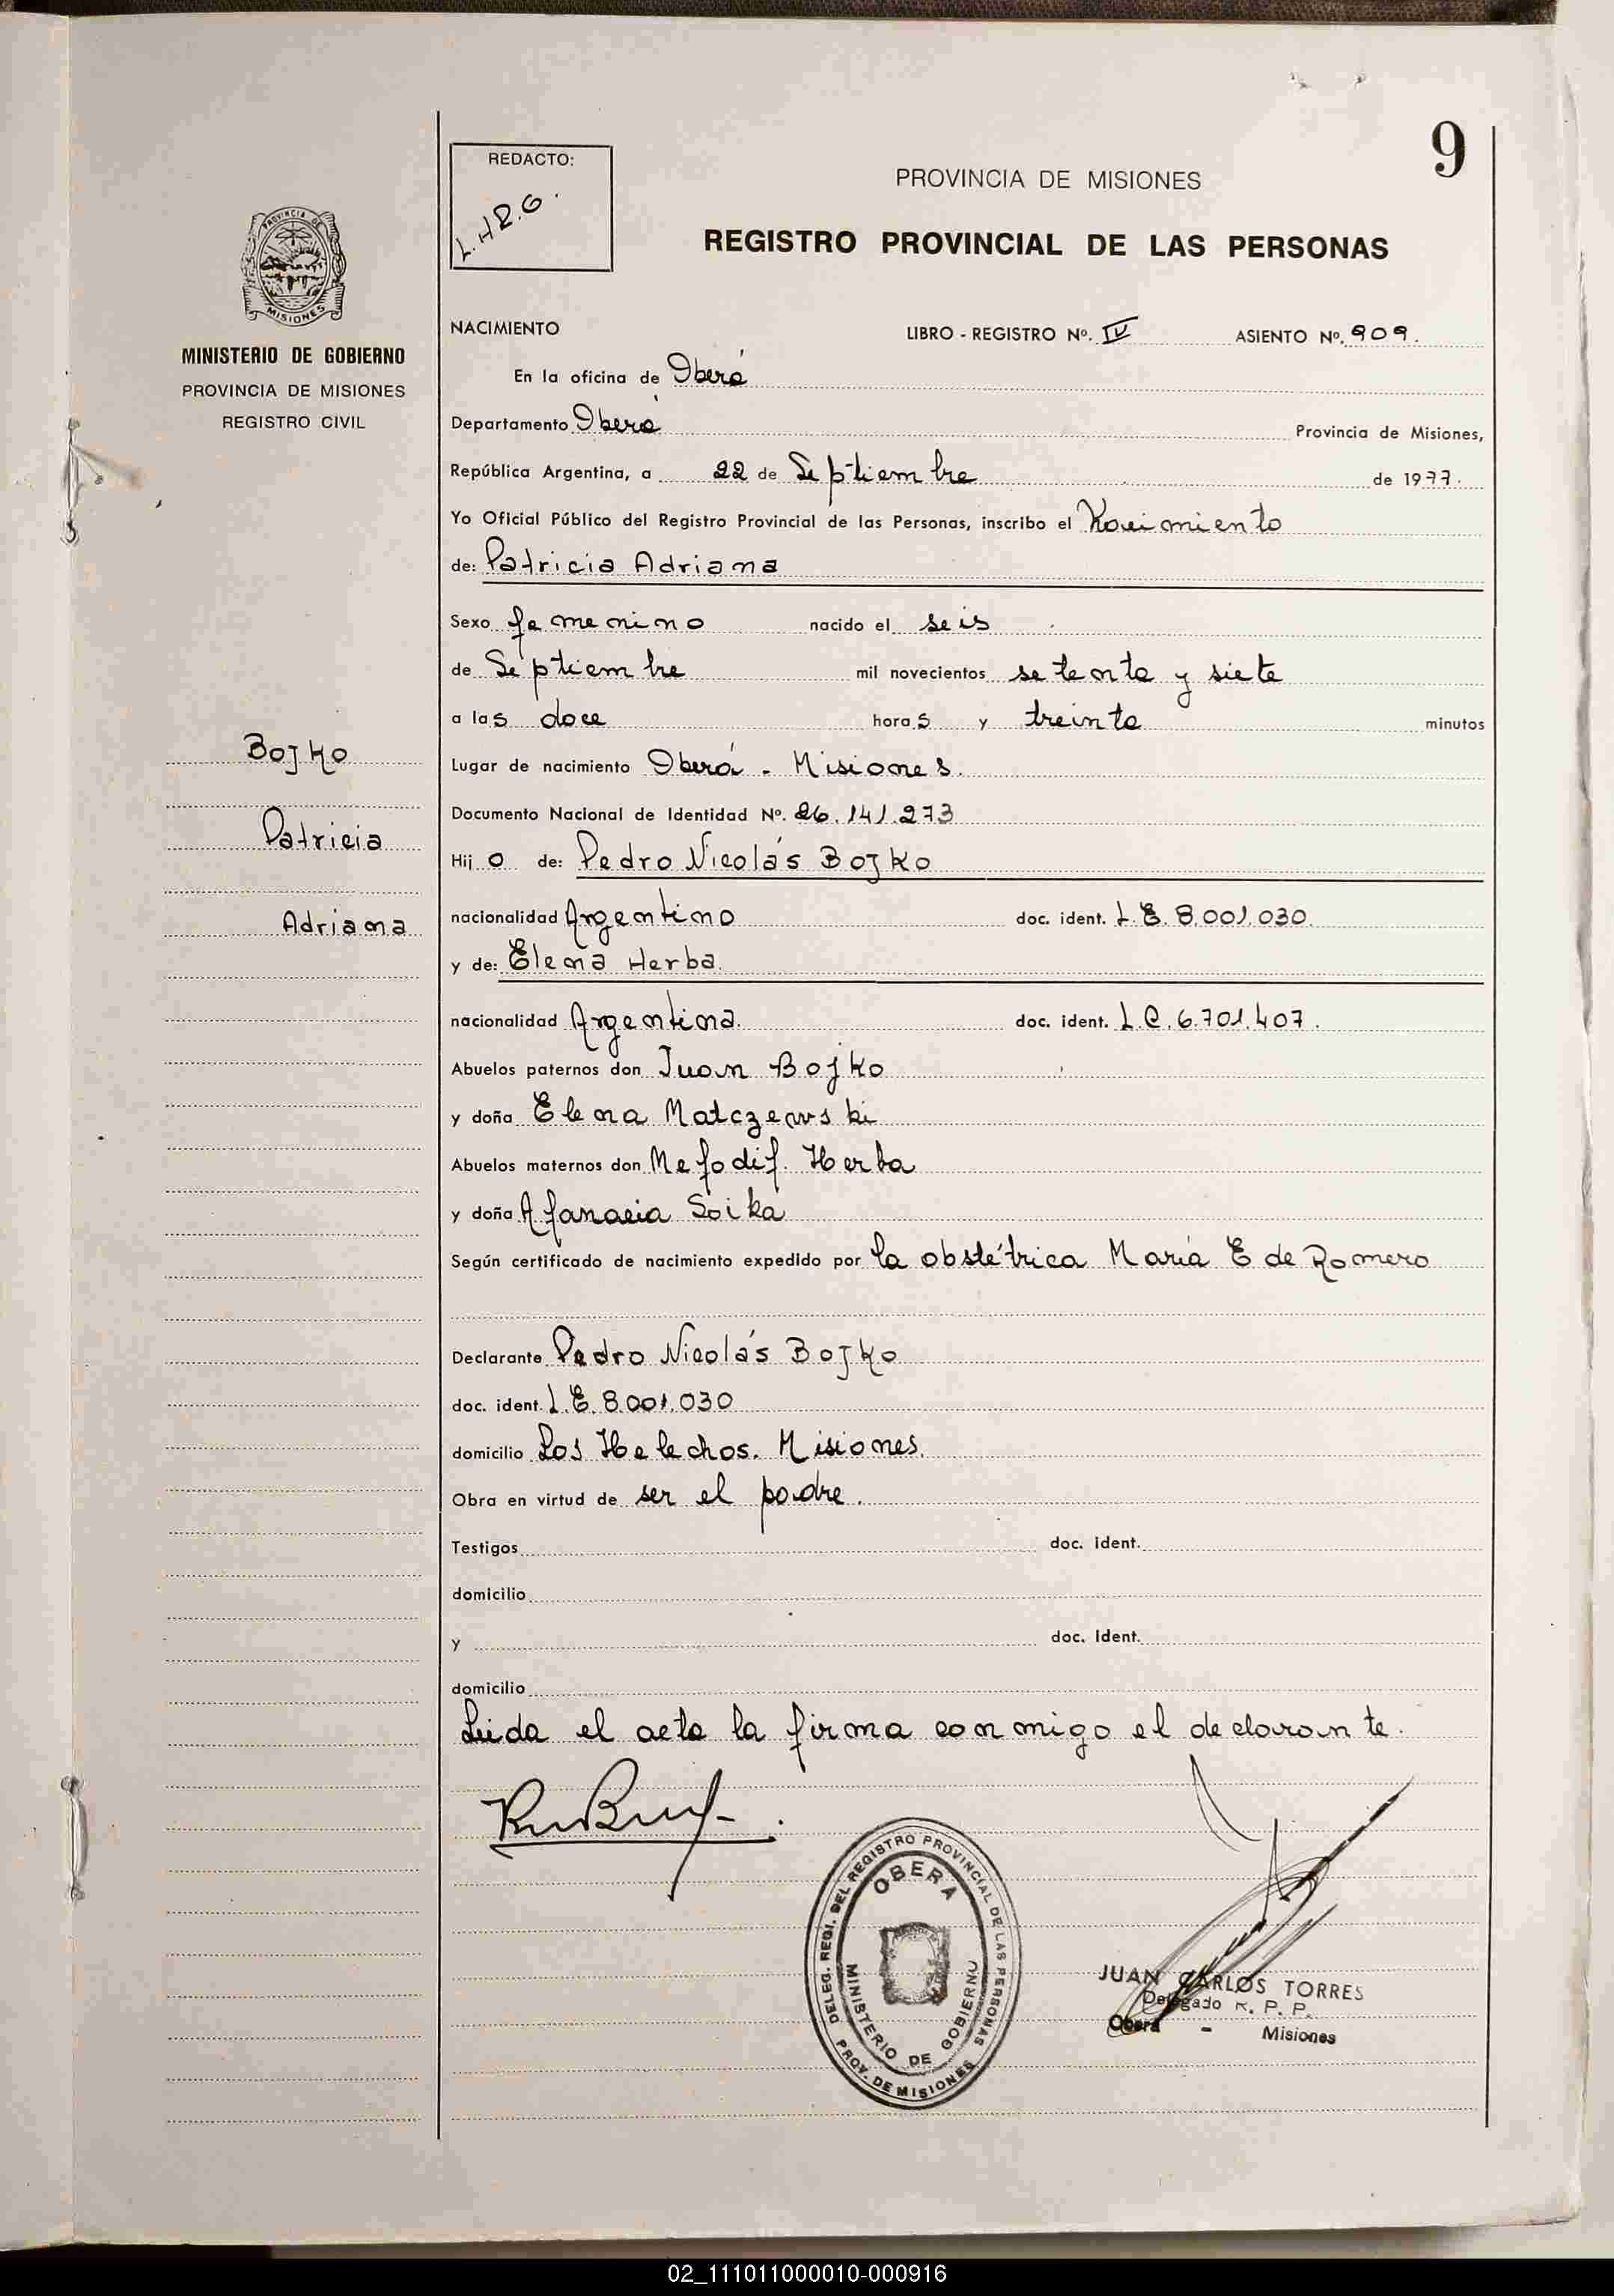 9
REDACTO:
L.H.R.G.
PROVINCIA DE MISIONES
REGISTRO PROVINCIAL DE LAS PERSONAS
PROVINCIA DE
MISIONES
MINISTERIO DE GOBIERNO
PROVINCIA DE MISIONES
REGISTRO CIVIL
Bojko
Patricia
Adriana
NACIMIENTO LIBRO - REGISTRO Nº. IV ASIENTO Nº. 909.
En la oficina de Oberá
Departamento Oberá Provincia de Misiones,
República Argentina, a 22 de Septiembre de 1977.
Yo Oficial Público del Registro Provincial de las Personas, inscribo el Nacimiento
de: Patricia Adriana
Sexo femenino nacido el seis
de Septiembre mil novecientos setenta y siete
a las doce horas y treinta minutos
Lugar de nacimiento Oberá - Misiones.
Documento Nacional de Identidad Nº. 26.141.273
Hij o de: Pedro Nicolás Bojko
nacionalidad Argentino doc. ident. L.E. 8.001.030.
y de: Elena Herba.
nacionalidad Argentina. doc. ident. L.C. 6.701.407.
Abuelos paternos don Juan Bojko
y doña Elena Matczewski
Abuelos maternos don Mefodif. Herba
y doña Afanasia Soika
Según certificado de nacimiento expedido por la obstétrica María E de Romero
Declarante Pedro Nicolás Bojko
doc. ident. L.E. 8.001.030
domicilio Los Helechos. Misiones.
Obra en virtud de ser el padre.
Testigos doc. Ident.
domicilio
y doc. Ident.
domicilio
Leida el acta la firma conmigo el declarante.
DELEG. REGI. DEL REGISTRO PROVINCIAL DE LAS PERSONAS
OBERA
MINISTERIO DE GOBIERNO
PROV. DE MISIONES
JUAN CARLOS TORRES
Delegado R. P. P.
Oberá - Misiones
02_111011000010-000916